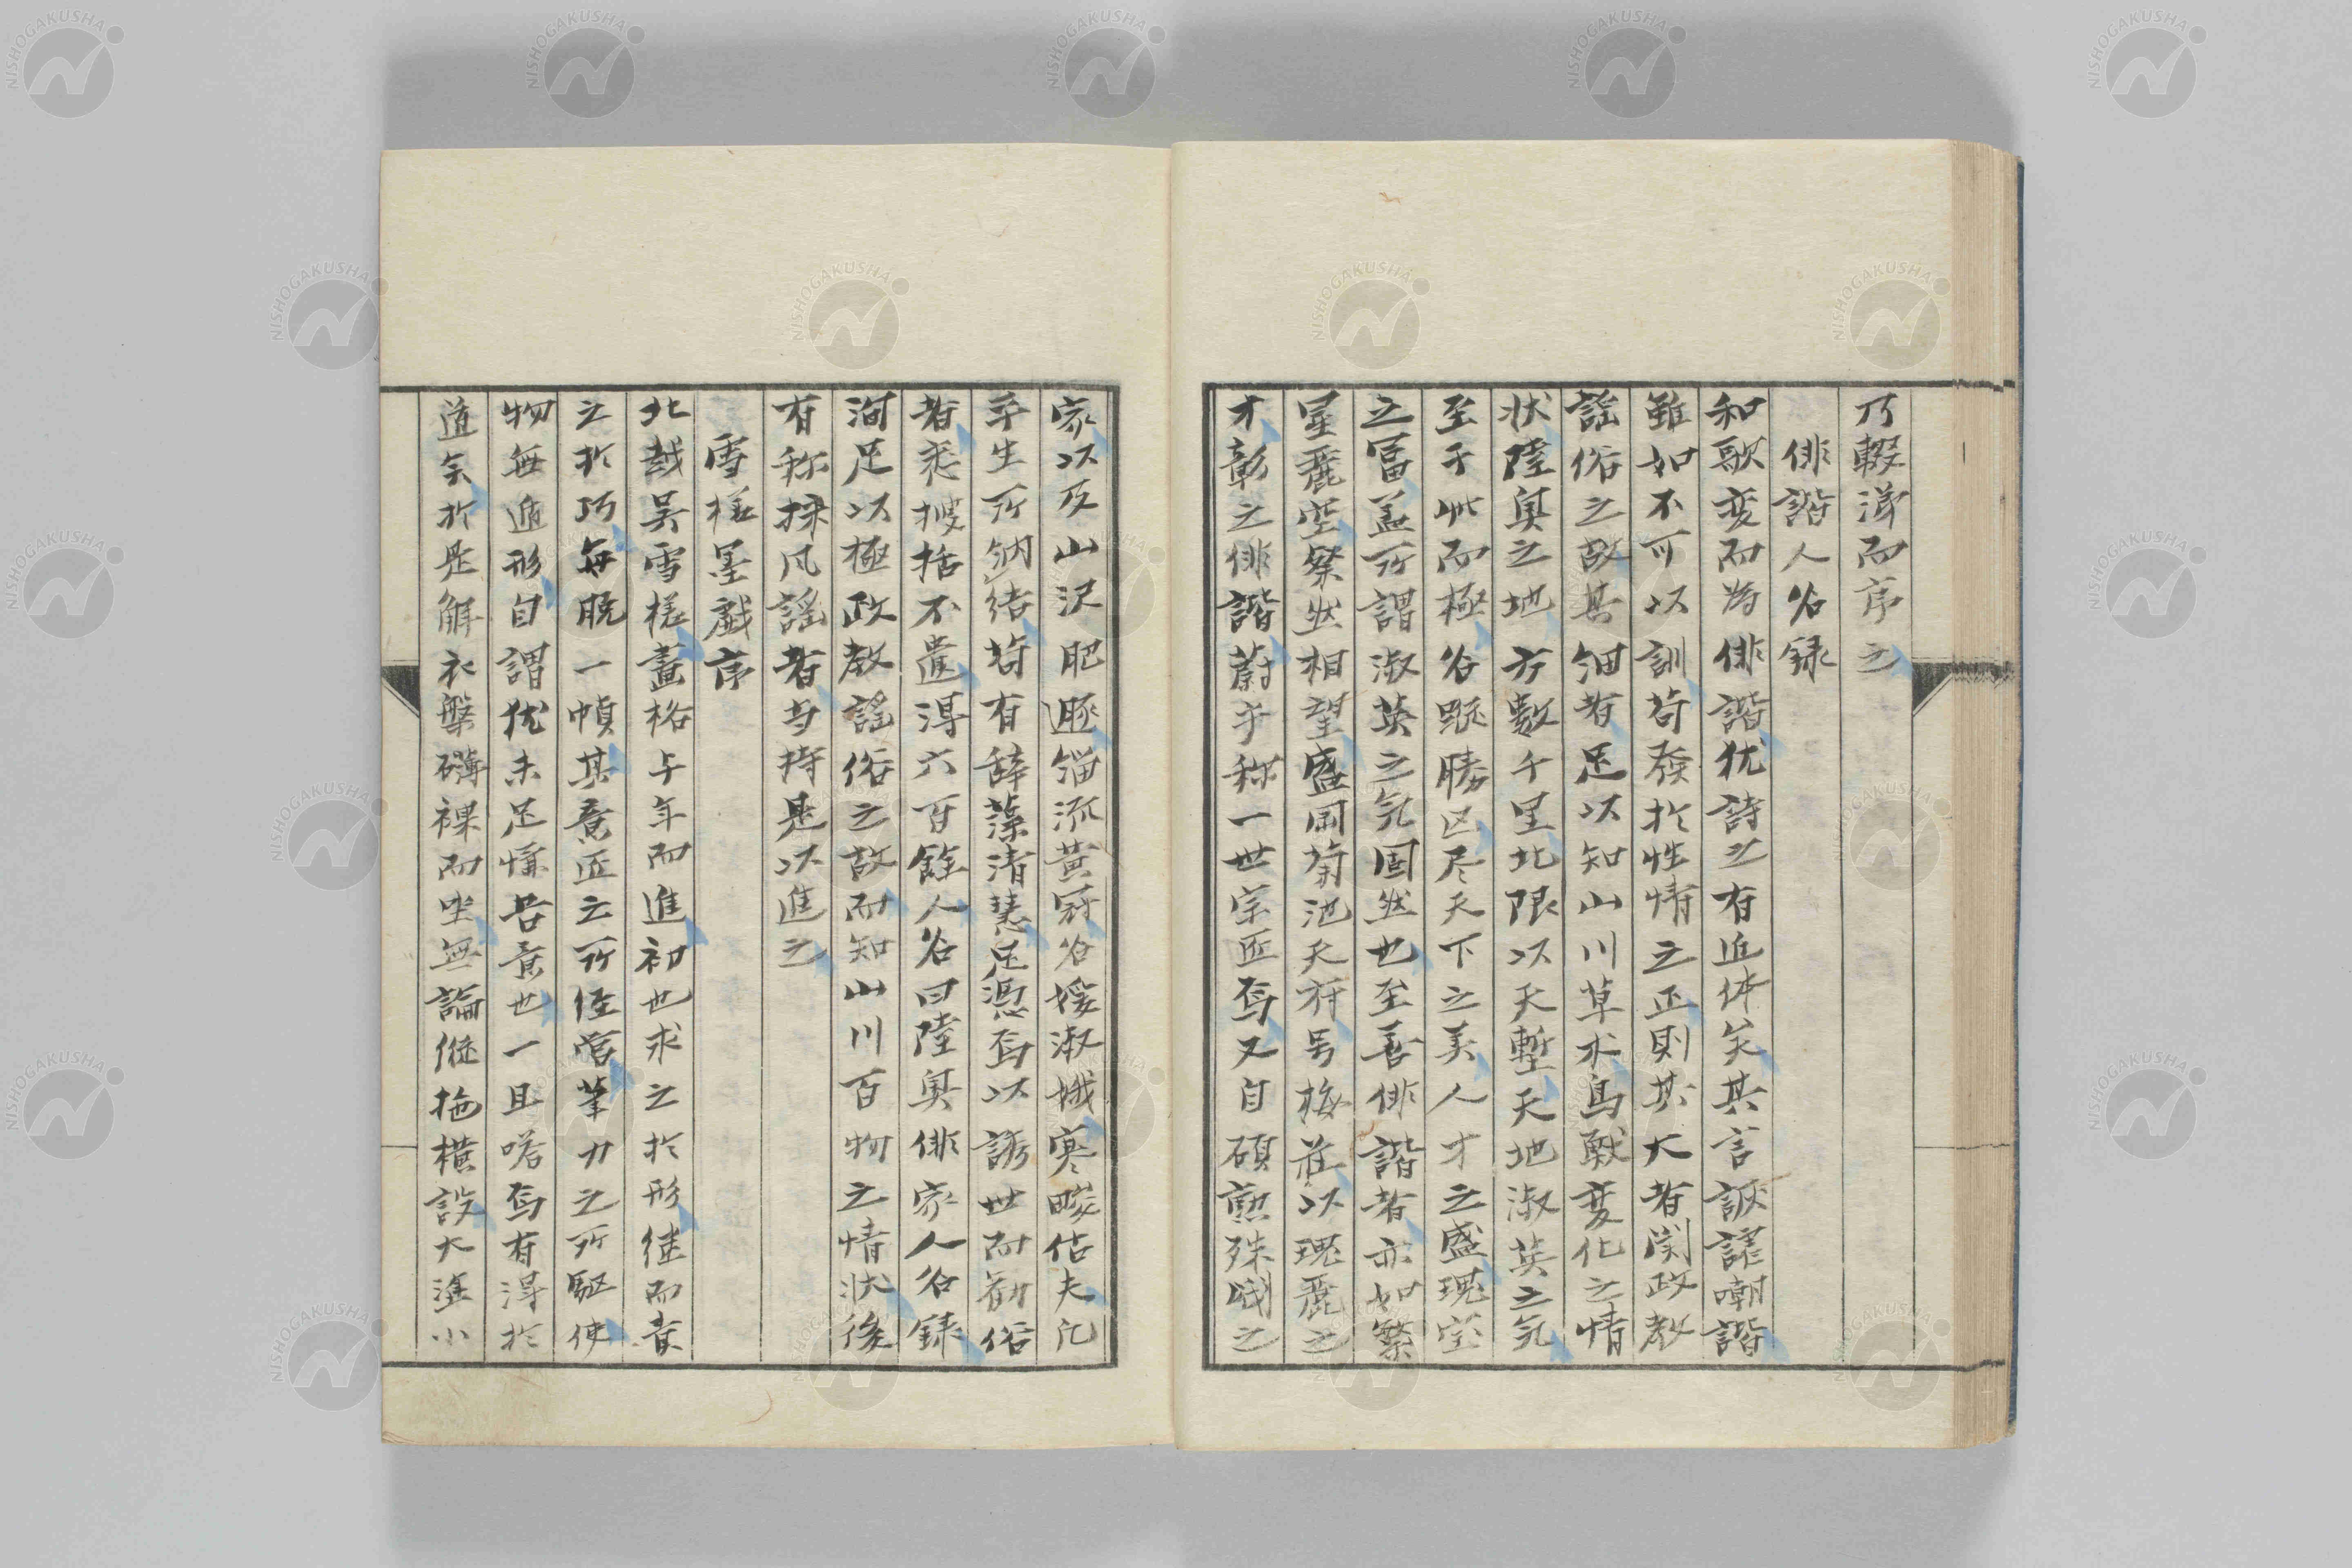 乃輟涕而序之
俳諧人名録
和歌変而為俳諧犹詩之有近体矣其言詼謔嘲諧
雖如不可以訓苟發於性情之正則其大者関政教
謡俗之故其細者足以知山川草木鳥獣変化之情
状陸奥之地方數千里北限以天塹天地淑英之気
至于此而極名蹤勝区尽天下之美人才之盛瑰宝
之富蓋所謂淑英之気固然也至善俳諧者亦如繁
星麗空粲然相望盛岡菊池天府号梅荘以瑰麗之
才彰之俳諧蔚乎称一世宗匠焉又自碩勲殊閥之
家以及山沢肥遯緇流黄冠名媛淑娥寒畯估夫凡
平生所納結苟有辞藻清慧足憑焉以誘世而勧俗
者悉捜括不遺得六百餘人名曰陸奥俳家人名録
洵足以極政教謡俗之故而知山川百物之情状後
有称採風謡者当持是以進之
雪樵墨戯序
北越呉雪樵畫格与年而進初也求之於形継而責
之於巧毎脱一幀其意匠之所径営筆力之所駆使
物無遁形自謂犹未足慊吾意也一旦嗒焉有得於
道矣於是解衣槃礴裸而坐無論縦拖横設大塗小